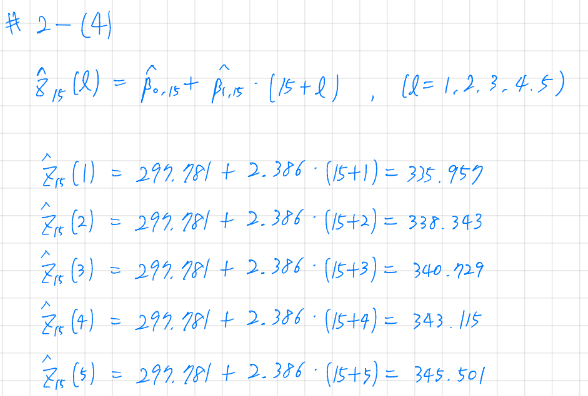 # 2 - (4)
ẑ₁₅(l) = β̂₀,₁₅ + β̂₁,₁₅ · (15+l) , (l = 1, 2, 3, 4, 5)
ẑ₁₅(1) = 297.781 + 2.386 · (15+1) = 335.957
ẑ₁₅(2) = 297.781 + 2.386 · (15+2) = 338.343
ẑ₁₅(3) = 297.781 + 2.386 · (15+3) = 340.729
ẑ₁₅(4) = 297.781 + 2.386 · (15+4) = 343.115
ẑ₁₅(5) = 297.781 + 2.386 · (15+5) = 345.501